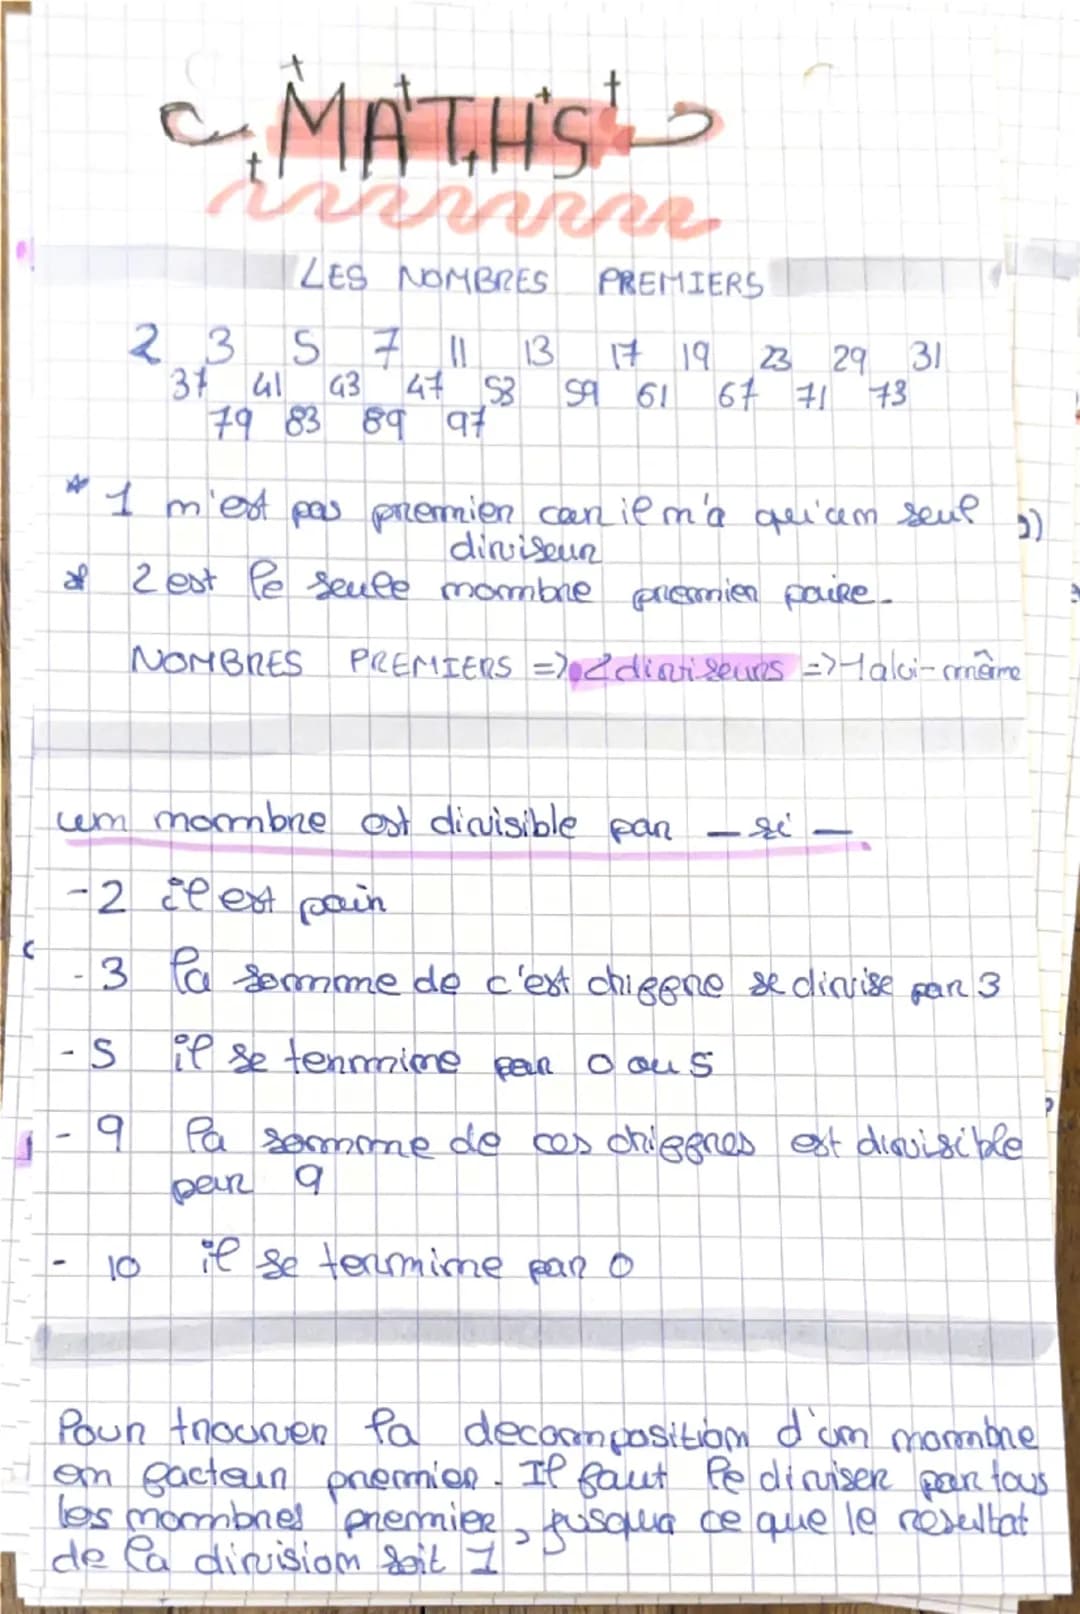 MATHS
LES NOMBRES PREMIERS
2 3 5 7 11 13 17 19 23 29 31
37 41 43 47 53 59 61 67 71 73
79 83 89 97
* 1 n'est pas premier car il n'a qu'un seul
diviseur
* 2 est le seule nombre premier paire.
NOMBRES PREMIERS => 2 diviseurs => 1 a lui-même
un nombre est divisible par — si —
- 2 il est pair
- 3 la somme de c'est chiffre se divise par 3
- 5 il se termine par 0 ou 5
- 9 la somme de ces chiffres est divisible
par 9
- 10 il se termine par 0
Pour trouver la decomposition d'un nombre
en facteur premier. Il faut le diviser par tous
les nombres premier, jusqua ce que le resultat
de la division soit 1